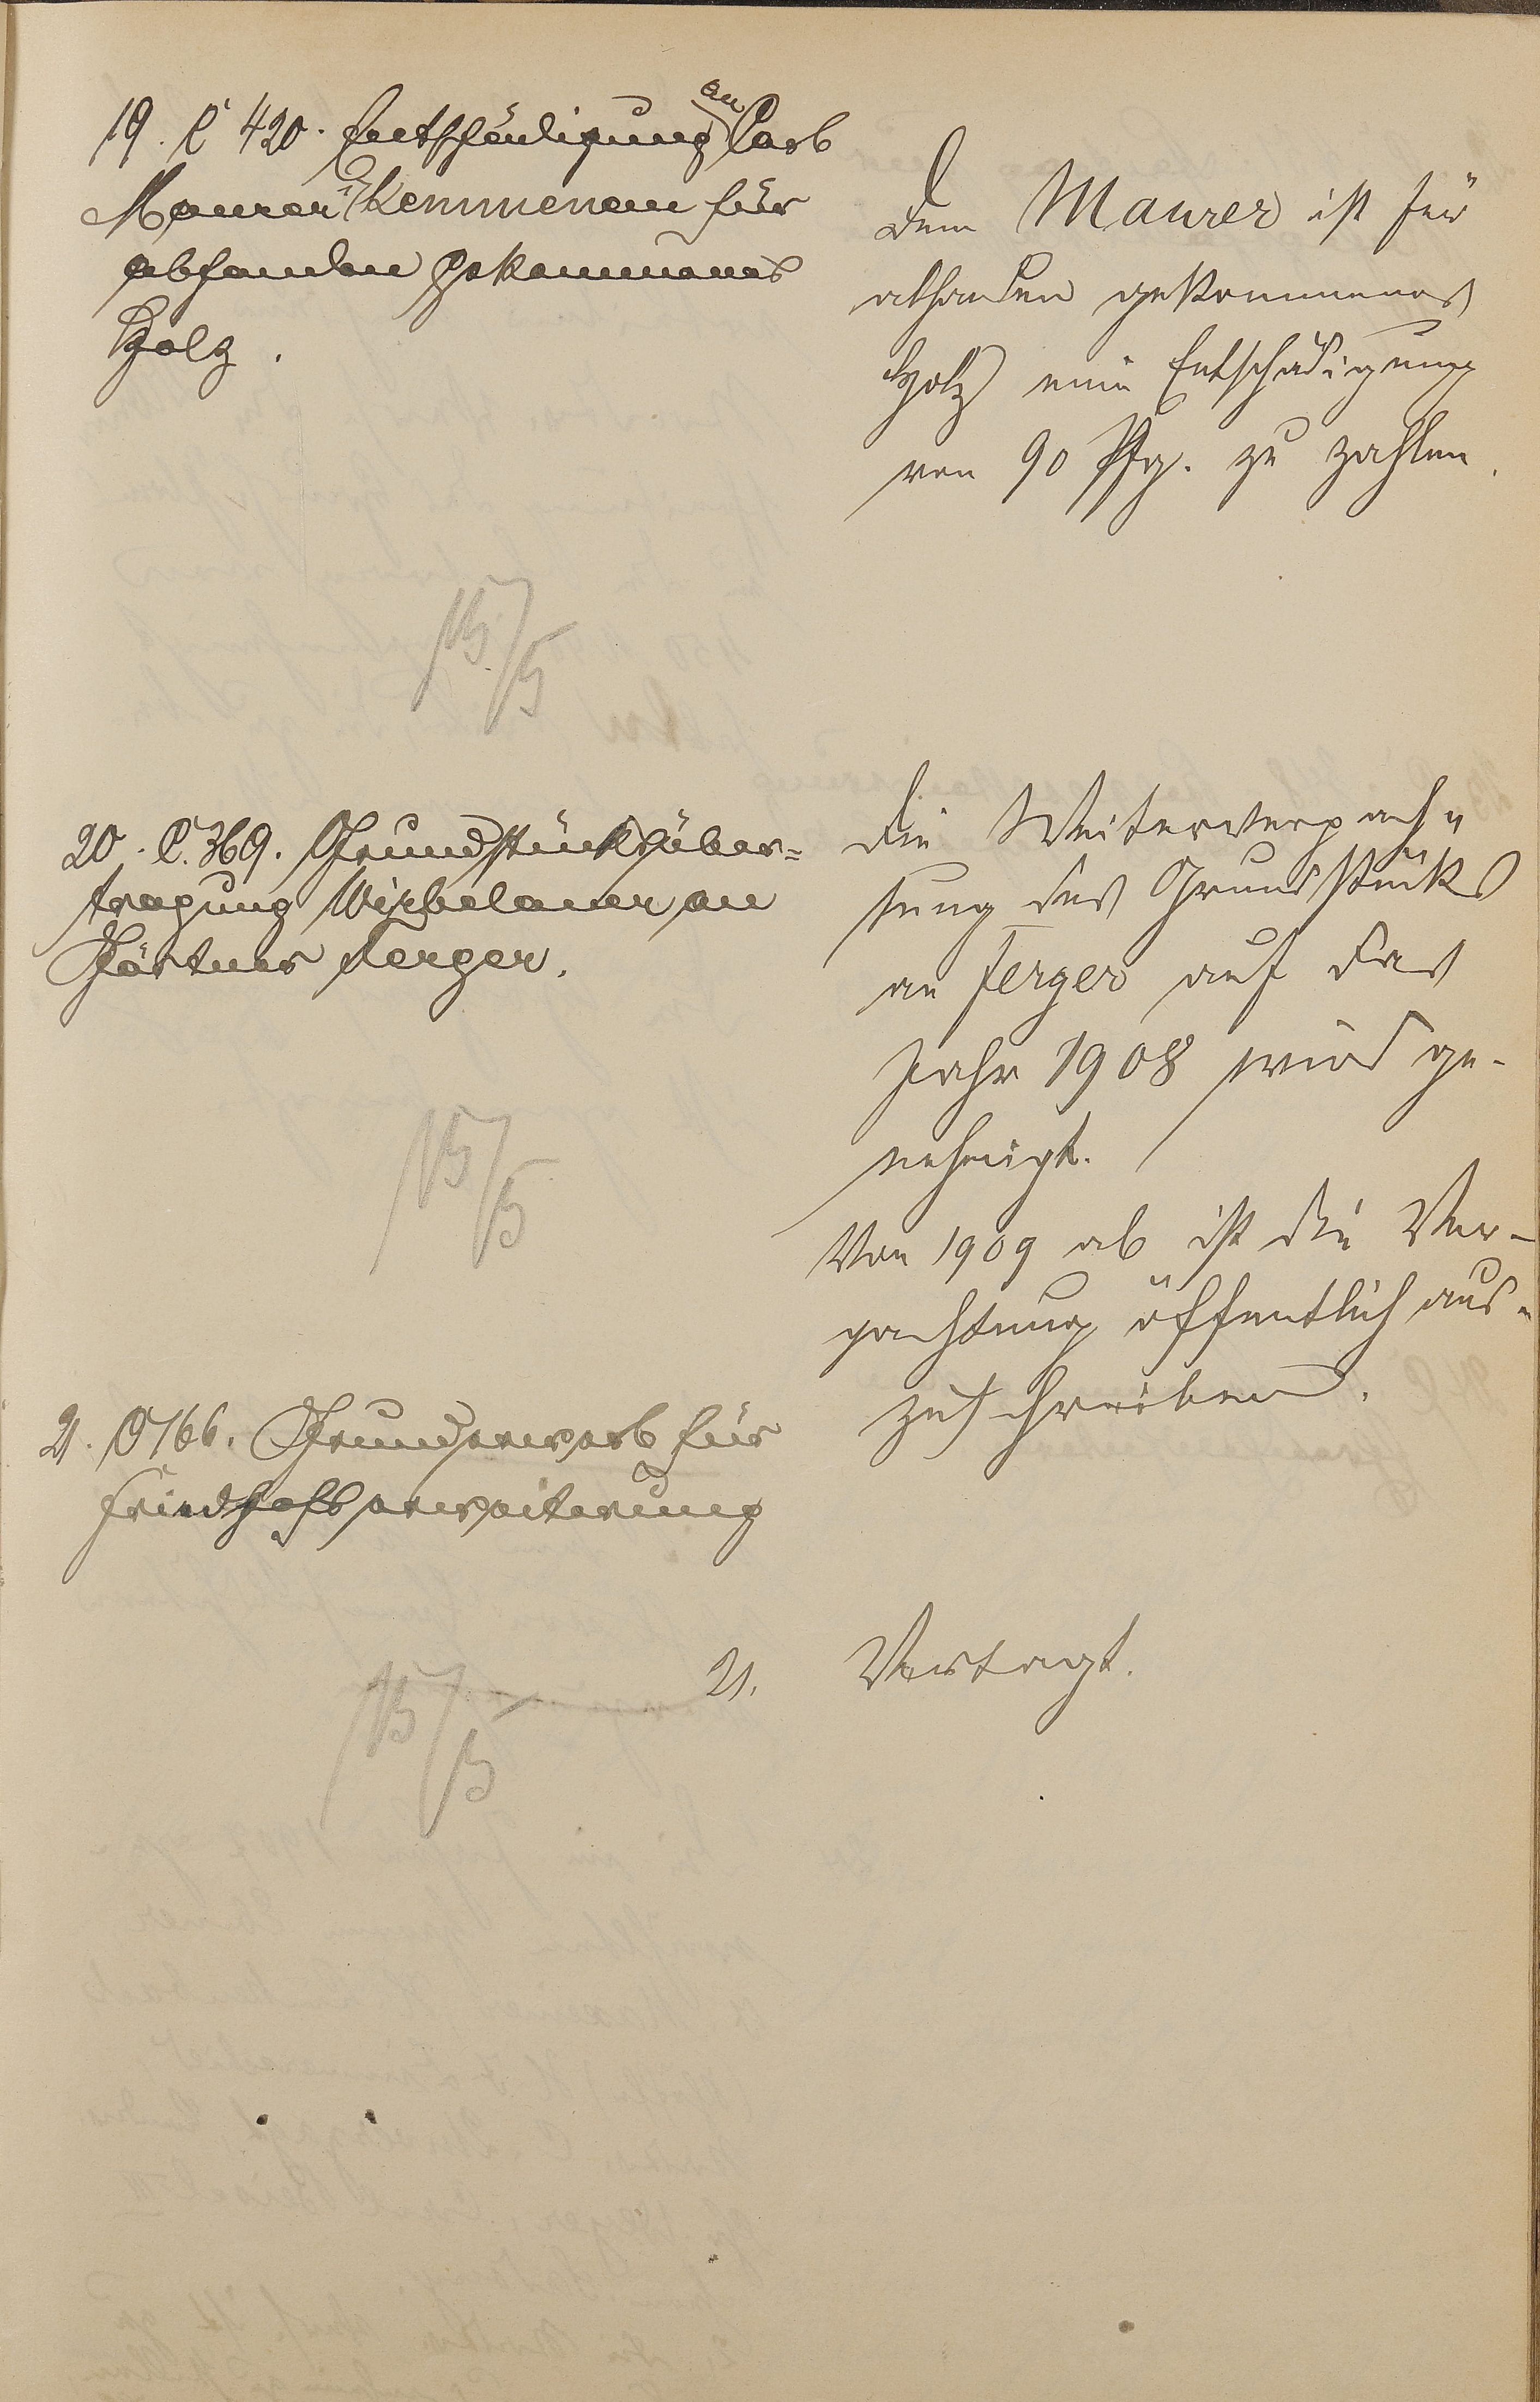 19. C 420. Entschädigung an Carl
Maurer Kemmenau für
abhanden gekommenes
Holz.
Dem Maurer ist für
abhanden gekommenes
Holz eine Entschädigung
von 90 Pfg. zu zahlen.
15/5
20. C. 369. Grundstücksüber=
tragung Wirbelauer an
Gärtner Ferger.
Die Weiterverpach"
tung des Grundstücks
an Ferger auf das
Jahr 1908 wird ge-
nehmigt.
Von 1909 ab ist die Ver-
pachtung öffentlich aus-
zuschreiben.
15/5
21. C 166. Grunderwerb für
Friedhofserweiterung
21. Vertagt.
15/5